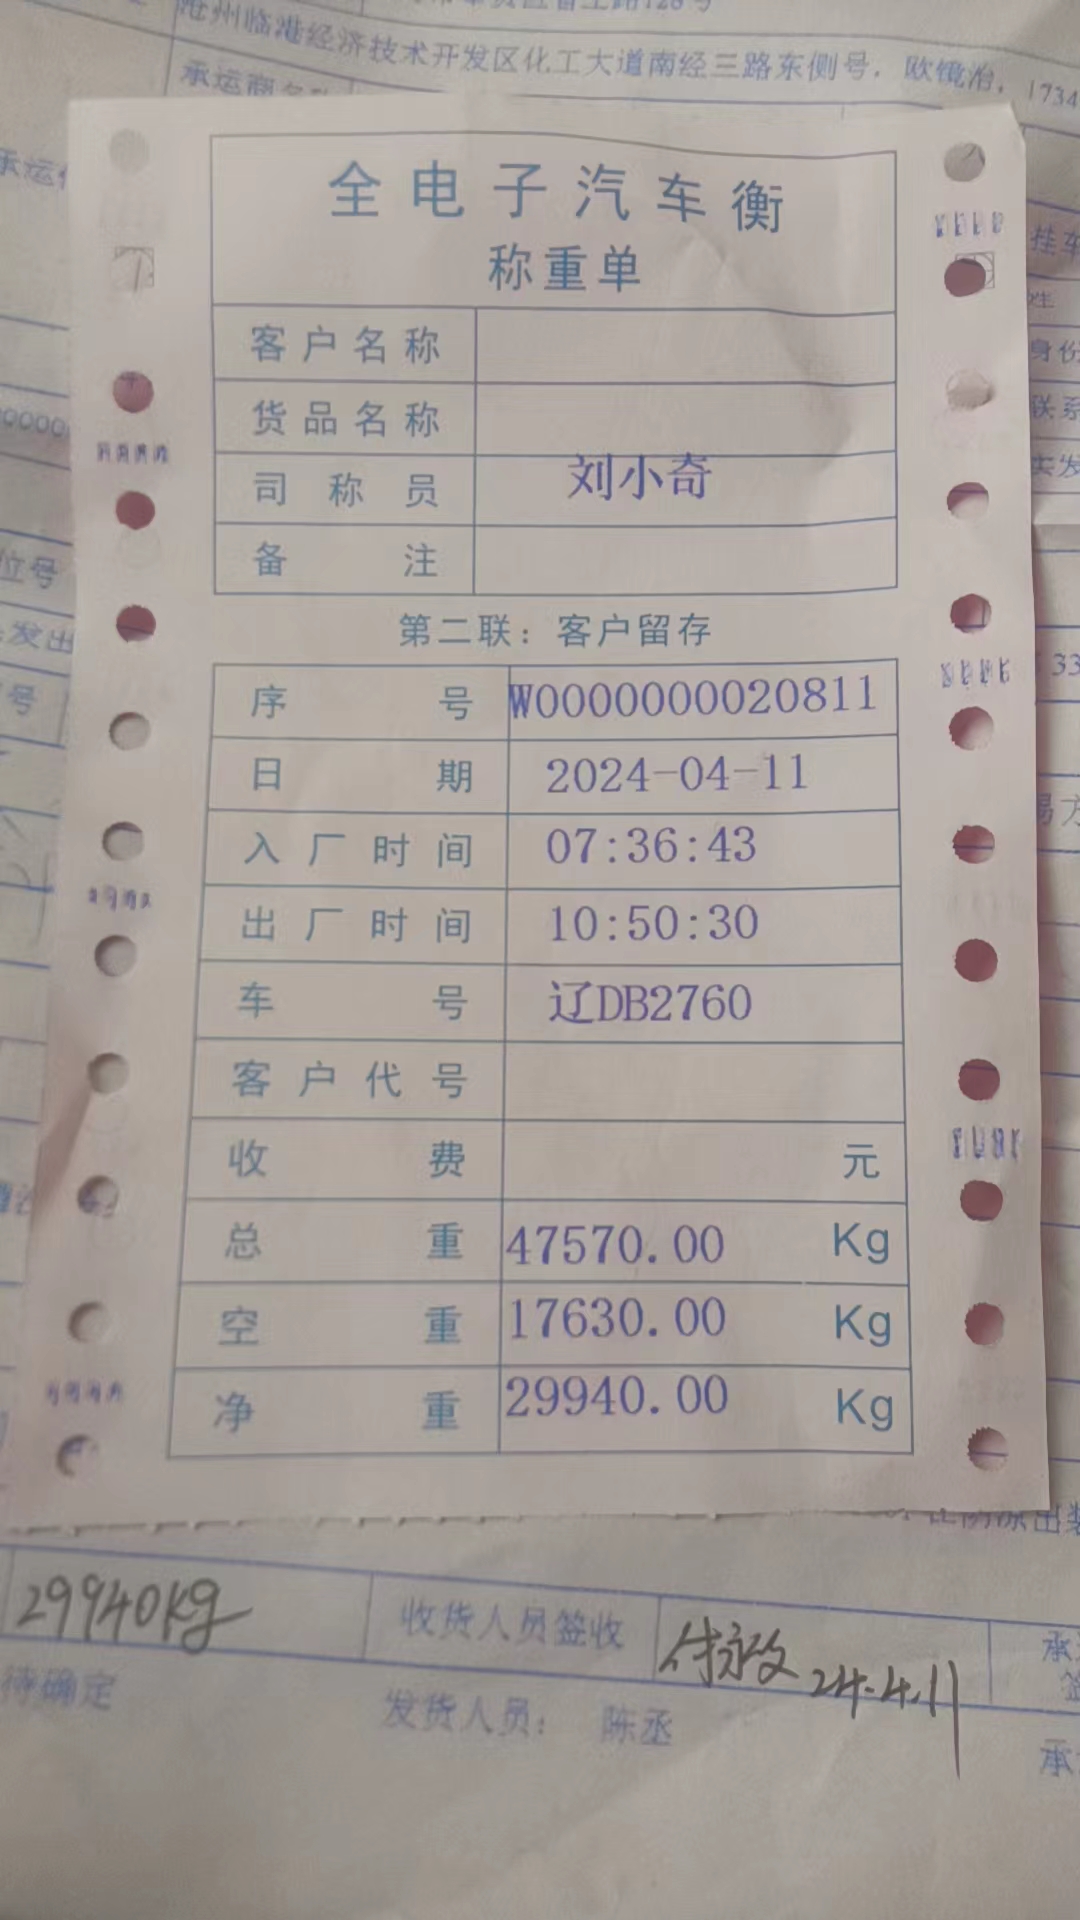 沧州临港经济技术开发区化工大道南经三路东侧号，欧镜治，1734
承运商名称
全电子汽车衡
称重单
客户名称
货品名称
司称员 刘小奇
备注
第二联：客户留存
序号 W0000000020811
日期 2024-04-11
入厂时间 07:36:43
出厂时间 10:50:30
车号 辽DB2760
客户代号
收费 元
总重 47570.00 Kg
空重 17630.00 Kg
净重 29940.00 Kg
承运
挂车
身份
联系
实发
位号
发出
号
33
29940kg 收货人员签收 付永改 24.4.11
待确定 发货人员： 陈丞